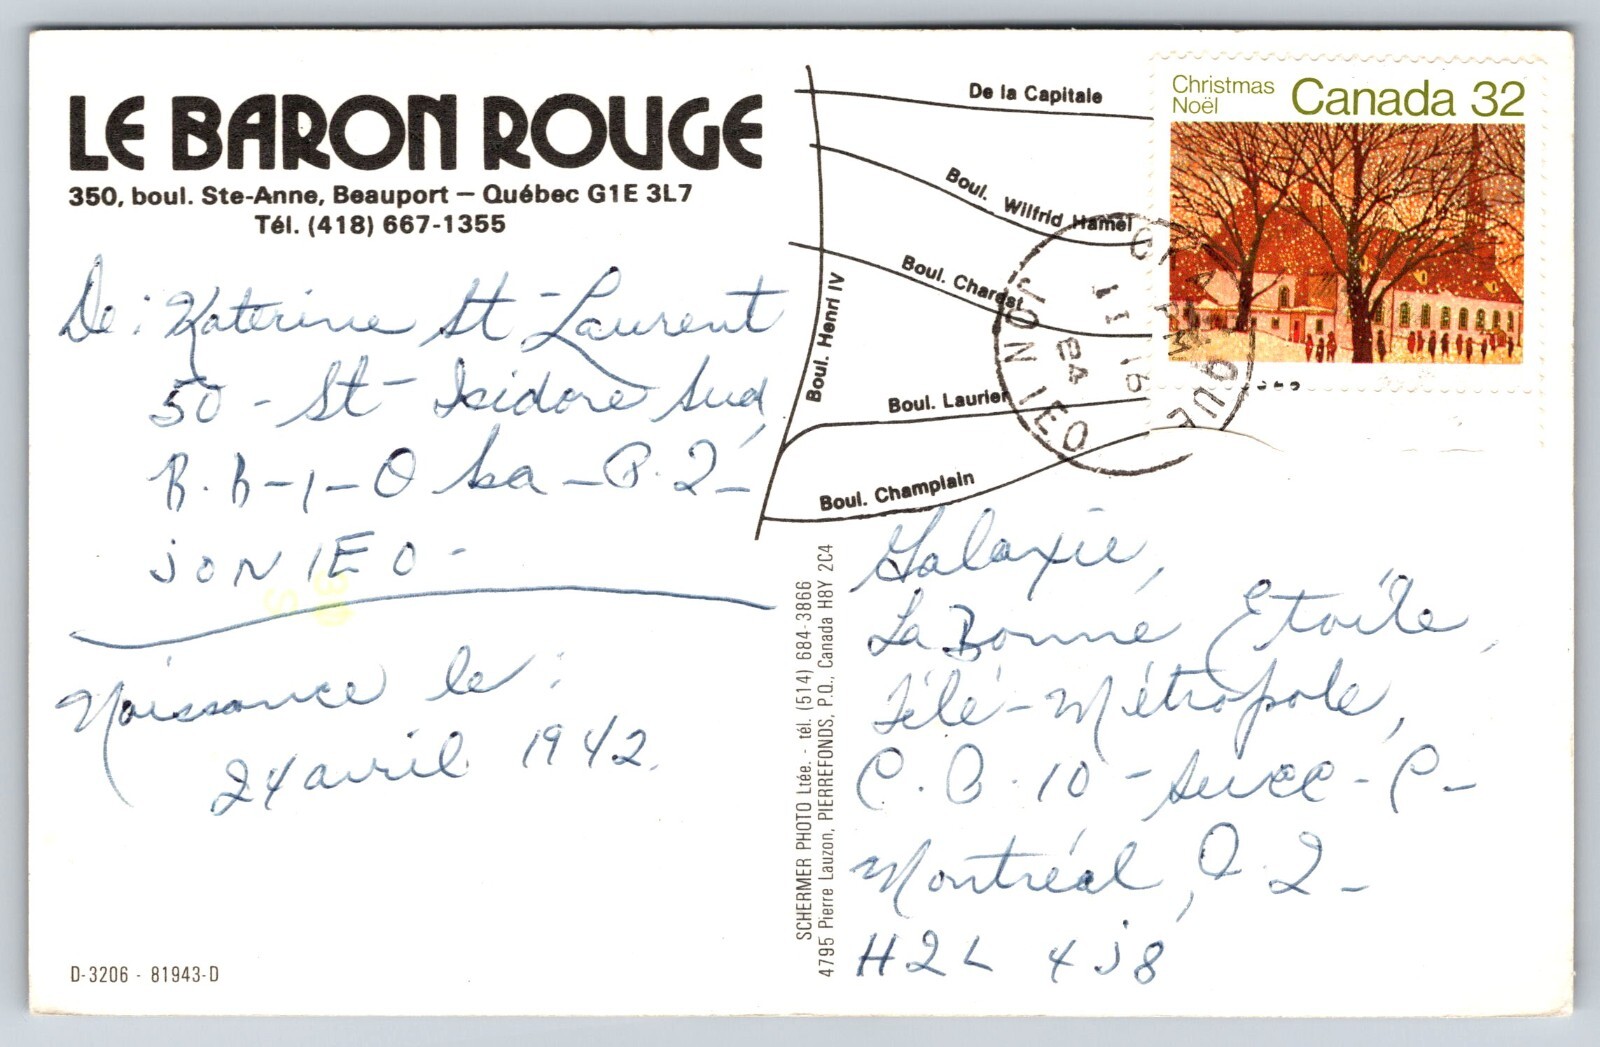 LE BARON ROUGE
350, boul. Ste-Anne, Beauport — Québec G1E 3L7
Tél. (418) 667-1355
De: Katerine St-Laurent
50 - St-Isidore Sud,
R.R-1-Oka-P.Q-
JON 1E0-
Naissance le:
24 avril 1942.
D-3206 - 81943-D
De la Capitale
Boul. Wilfrid Hamel
Boul. Charest
Boul. Henri IV
Boul. Laurier
Boul. Champlain
Christmas
Noël
Canada 32
OKA
QUE
PM
11 16
84
JON 1EO
SCHERMER PHOTO Ltée. - tél. (514) 684-3866
4795 Pierre Lauzon, PIERREFONDS, P.Q., Canada H8Y 2C4
Galaxie,
La Bonne Etoile,
Télé-Métropole,
C.P.10-Succ-C-
Montréal, P.Q-
H2L 4J8